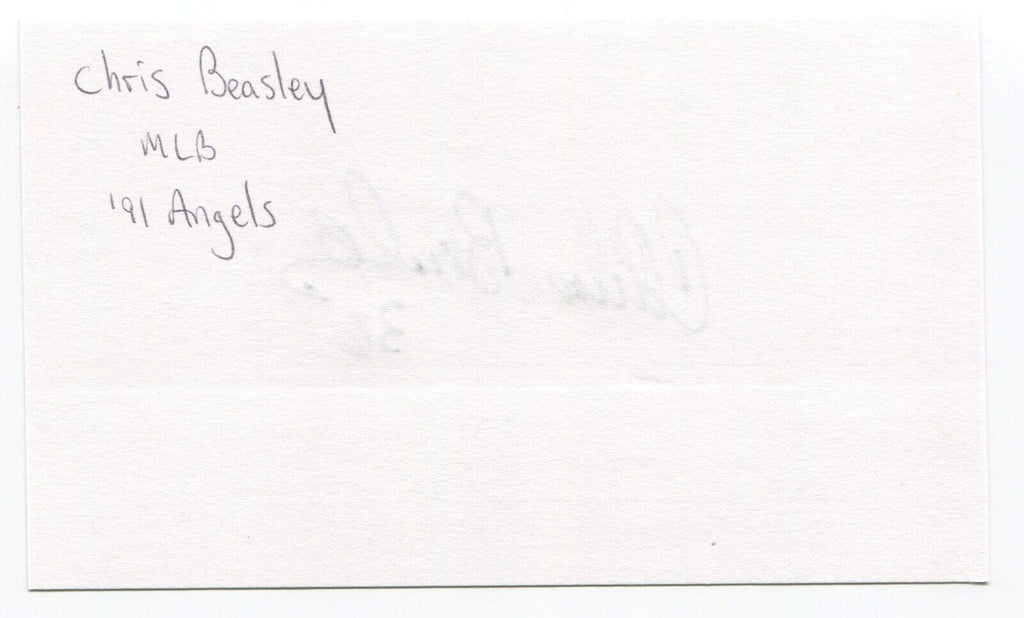 Chris Beasley
MLB
'91 Angels